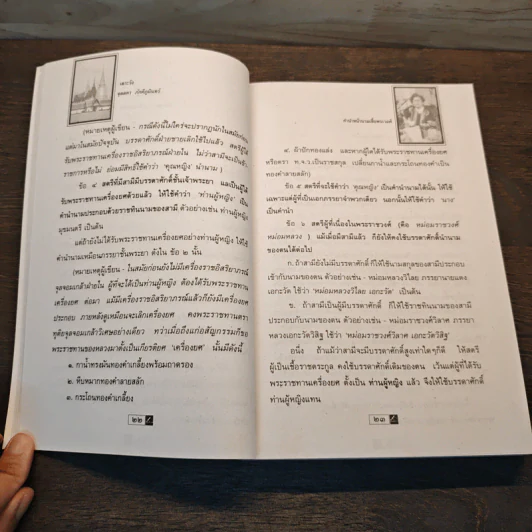 เลาะวัง
จุลลดา ภักดีภูมินทร์
(หมายเหตุผู้เขียน - กรณีดังนี้ไม่ใคร่จะปรากฏนักในสมัยก่อน
แต่มาในสมัยปัจจุบัน บรรดาศักดิ์ฝ่ายชายเลิกใช้ไปแล้ว สตรีผู้ได้
รับพระราชทานเครื่องราชอิสริยาภรณ์ฝ่ายใน ไม่ว่าสามีจะเป็นข้า
ราชการหรือไม่ ย่อมมีสิทธิใช้คำว่า 'คุณหญิง' นำนาม)
ข้อ ๔ สตรีที่มีสามีมีบรรดาศักดิ์ชั้นเจ้าพระยา และเป็นผู้ได้
รับพระราชทานเครื่องยศด้วยแล้ว ให้ใช้คำว่า 'ท่านผู้หญิง' เป็น
คำนำนามประกอบด้วยราชทินนามของสามี ตัวอย่างเช่น ท่านผู้หญิง
ยมราช เป็นต้น
แต่ถ้ายังไม่ได้รับพระราชทานเครื่องยศอย่างท่านผู้หญิง ให้ใช้
คำนำนามเหมือนภรรยาชั้นพระยา ดังใน ข้อ ๒ นั้น
(หมายเหตุผู้เขียน - ในสมัยก่อนยังไม่มีเครื่องราชอิสริยาภรณ์
จุลจอมเกล้าฝ่ายใน ผู้ที่จะได้เป็นท่านผู้หญิง ต้องได้รับพระราชทาน
เครื่องยศ ต่อมา แม้มีเครื่องราชอิสริยาภรณ์แล้วก็ยังมีเครื่องยศ
ประกอบ ภายหลังดูเหมือนจะเลิกเครื่องยศ คงพระราชทานตรา
ทุติยจุลจอมเกล้าวิเศษอย่างเดียว ทว่าเมื่อถึงแก่อสัญกรรมก็ขอ
พระราชทานของหลวงมาตั้งเป็นเกียรติยศ 'เครื่องยศ' นั้นมีดังนี้
๑. กาน้ำทรงมันทองคำเกลี้ยงพร้อมถาดรอง
๒. หีบหมากทองคำลายสลัก
๓. กระโถนทองคำเกลี้ยง
๒๒
คำนำหน้านามเพื่อความรู้
๔. ผ้าปักทองแล่ง และหากผู้ใดได้รับพระราชทานเครื่องยศ
หรือตรา ท.จ.ว.เป็นราชสกุล เปลี่ยนกาน้ำและกระโถนทองคำเป็น
ทองคำลายสลัก)
ข้อ ๕ สตรีที่จะใช้คำว่า 'คุณหญิง' เป็นคำนำนามได้นั้น ให้ใช้
เฉพาะแต่ผู้ที่เป็นเอกภรรยาจำพวกเดียว นอกนั้นให้ใช้คำว่า 'นาง'
เป็นคำนำ
ข้อ ๖ สตรีผู้ที่เนื่องในพระราชวงศ์ (คือ หม่อมราชวงศ์
หม่อมหลวง ) แม้เมื่อมีสามีแล้ว ก็ยังให้คงใช้บรรดาศักดิ์นำนาม
ของตนได้ต่อไป
ก. ถ้าสามียังไม่มีบรรดาศักดิ์ ก็ให้ใช้นามสกุลของสามีประกอบ
เข้ากับนามของตน ตัวอย่าง - หม่อมหลวงวิไลย ภรรยานายแดง
เอกะวัต ใช้ว่า 'หม่อมหลวงวิไลย เอกะวัต' เป็นต้น
ข. ถ้าสามีเป็นผู้มีบรรดาศักดิ์ ก็ให้ใช้ราชทินนามของสามี
ประกอบกับนามของตน ตัวอย่างเช่น - หม่อมราชวงศ์วิลาศ ภรรยา
หลวงเอกะวัตวิสิฐ ใช้ว่า 'หม่อมราชวงศ์วิลาศ เอกะวัตวิสิฐ'
อนึ่ง ถ้าแม้ว่าสามีจะมีบรรดาศักดิ์สูงเท่าใดๆก็ดี ให้สตรี
ผู้เป็นเชื้อราชตระกูล คงใช้บรรดาศักดิ์เดิมของตน เว้นแต่ผู้ที่ได้รับ
พระราชทานเครื่องยศ ตั้งเป็น ท่านผู้หญิง แล้ว จึงให้ใช้บรรดาศักดิ์
ท่านผู้หญิงแทน
๒๓